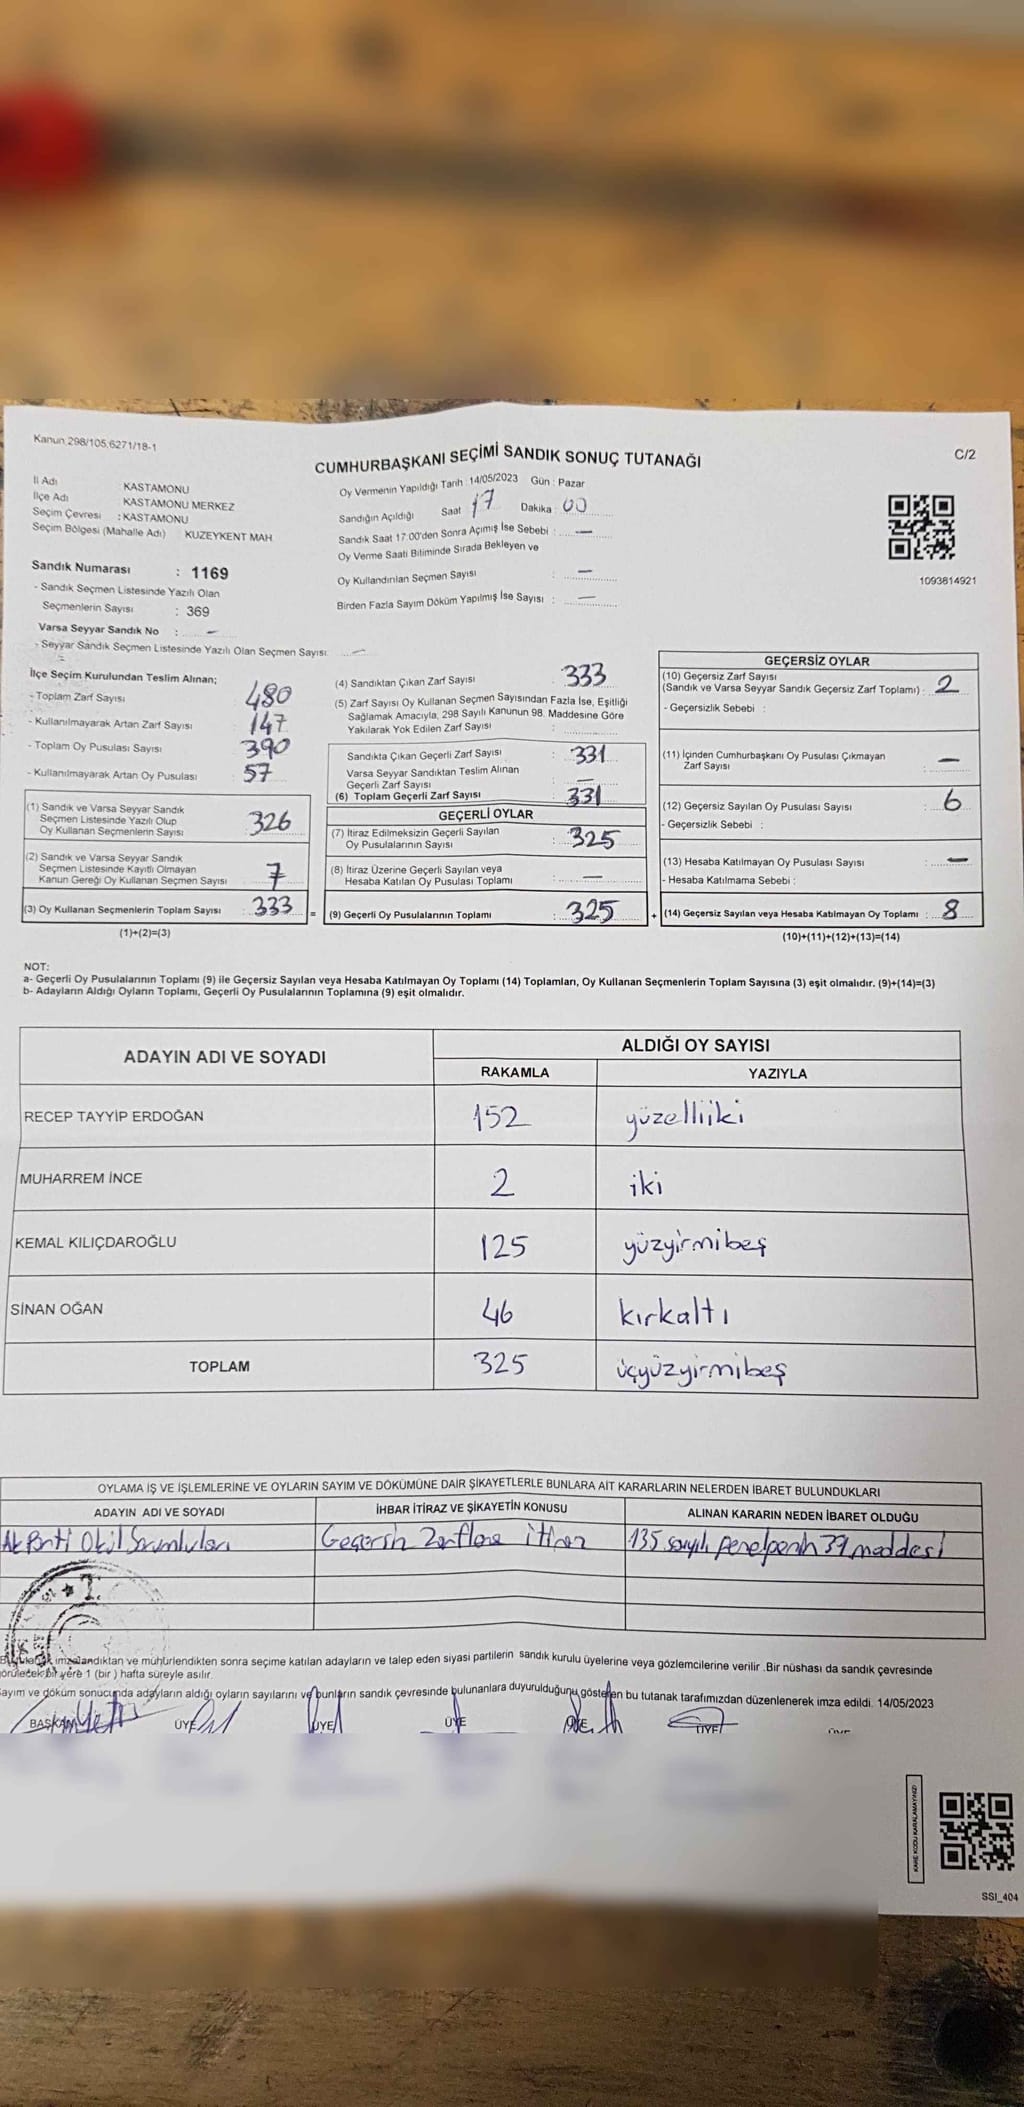 Kanun 298/105,6271/18-1
C/2
CUMHURBAŞKANI SEÇİMİ SANDIK SONUÇ TUTANAĞI
İl Adı KASTAMONU
İlçe Adı KASTAMONU MERKEZ
Seçim Çevresi : KASTAMONU
Seçim Bölgesi (Mahalle Adı) KUZEYKENT MAH
Oy Vermenin Yapıldığı Tarih : 14/05/2023 Gün : Pazar
Sandığın Açıldığı Saat 17 Dakika 00
Sandık Saat 17.00'den Sonra Açımış İse Sebebi : —
Oy Verme Saati Bitiminde Sırada Bekleyen ve
Oy Kullandırılan Seçmen Sayısı : —
Birden Fazla Sayım Döküm Yapılmış İse Sayısı : —
1093814921
Sandık Numarası : 1169
- Sandık Seçmen Listesinde Yazılı Olan
Seçmenlerin Sayısı : 369
Varsa Seyyar Sandık No : —
- Seyyar Sandık Seçmen Listesinde Yazılı Olan Seçmen Sayısı: —
İlçe Seçim Kurulundan Teslim Alınan;
- Toplam Zarf Sayısı 480
- Kullanılmayarak Artan Zarf Sayısı 147
- Toplam Oy Pusulası Sayısı 390
- Kullanılmayarak Artan Oy Pusulası 57
(1) Sandık ve Varsa Seyyar Sandık
Seçmen Listesinde Yazılı Olup
Oy Kullanan Seçmenlerin Sayısı 326
(2) Sandık ve Varsa Seyyar Sandık
Seçmen Listesinde Kayıtlı Olmayan
Kanun Gereği Oy Kullanan Seçmen Sayısı 7
(3) Oy Kullanan Seçmenlerin Toplam Sayısı : 333
(1)+(2)=(3)
(4) Sandıktan Çıkan Zarf Sayısı : 333
(5) Zarf Sayısı Oy Kullanan Seçmen Sayısından Fazla İse, Eşitliği
Sağlamak Amacıyla, 298 Sayılı Kanunun 98. Maddesine Göre
Yakılarak Yok Edilen Zarf Sayısı :
Sandıkta Çıkan Geçerli Zarf Sayısı : 331
Varsa Seyyar Sandıktan Teslim Alınan
Geçerli Zarf Sayısı : —
(6) Toplam Geçerli Zarf Sayısı : 331
GEÇERLİ OYLAR
(7) İtiraz Edilmeksizin Geçerli Sayılan
Oy Pusulalarının Sayısı : 325
(8) İtiraz Üzerine Geçerli Sayılan veya
Hesaba Katılan Oy Pusulası Toplamı : —
= (9) Geçerli Oy Pusulalarının Toplamı : 325
GEÇERSİZ OYLAR
(10) Geçersiz Zarf Sayısı
(Sandık ve Varsa Seyyar Sandık Geçersiz Zarf Toplamı) : 2
- Geçersizlik Sebebi :
(11) İçinden Cumhurbaşkanı Oy Pusulası Çıkmayan
Zarf Sayısı : —
(12) Geçersiz Sayılan Oy Pusulası Sayısı : 6
- Geçersizlik Sebebi :
(13) Hesaba Katılmayan Oy Pusulası Sayısı : —
- Hesaba Katılmama Sebebi :
+ (14) Geçersiz Sayılan veya Hesaba Katılmayan Oy Toplamı : 8
(10)+(11)+(12)+(13)=(14)
NOT:
a- Geçerli Oy Pusulalarının Toplamı (9) ile Geçersiz Sayılan veya Hesaba Katılmayan Oy Toplamı (14) Toplamları, Oy Kullanan Seçmenlerin Toplam Sayısına (3) eşit olmalıdır. (9)+(14)=(3)
b- Adayların Aldığı Oyların Toplamı, Geçerli Oy Pusulalarının Toplamına (9) eşit olmalıdır.
ADAYIN ADI VE SOYADI
ALDIĞI OY SAYISI
RAKAMLA YAZIYLA
RECEP TAYYİP ERDOĞAN 152 yüzelliiki
MUHARREM İNCE 2 iki
KEMAL KILIÇDAROĞLU 125 yüzyirmibeş
SİNAN OĞAN 46 kırkaltı
TOPLAM 325 üçyüzyirmibeş
OYLAMA İŞ VE İŞLEMLERİNE VE OYLARIN SAYIM VE DÖKÜMÜNE DAİR ŞİKAYETLERLE BUNLARA AİT KARARLARIN NELERDEN İBARET BULUNDUKLARI
ADAYIN ADI VE SOYADI İHBAR İTİRAZ VE ŞİKAYETİN KONUSU ALINAN KARARIN NEDEN İBARET OLDUĞU
Ak Parti Okul Sorumluları Geçersiz Zarflara itiraz 135 sayılı 37 maddesi
imzalandıktan ve mühürlendikten sonra seçime katılan adayların ve talep eden siyasi partilerin sandık kurulu üyelerine veya gözlemcilerine verilir .Bir nüshası da sandık çevresinde
görülecek bir yere 1 (bir ) hafta süreyle asılır.
Sayım ve döküm sonucunda adayların aldığı oyların sayılarını ve bunların sandık çevresinde bulunanlara duyurulduğunu gösteren bu tutanak tarafımızdan düzenlenerek imza edildi. 14/05/2023
BAŞKAN ÜYE ÜYE ÜYE ÜYE ÜYE ÜYE
KARE KODU KARALAMAYINIZ!
SSI_404